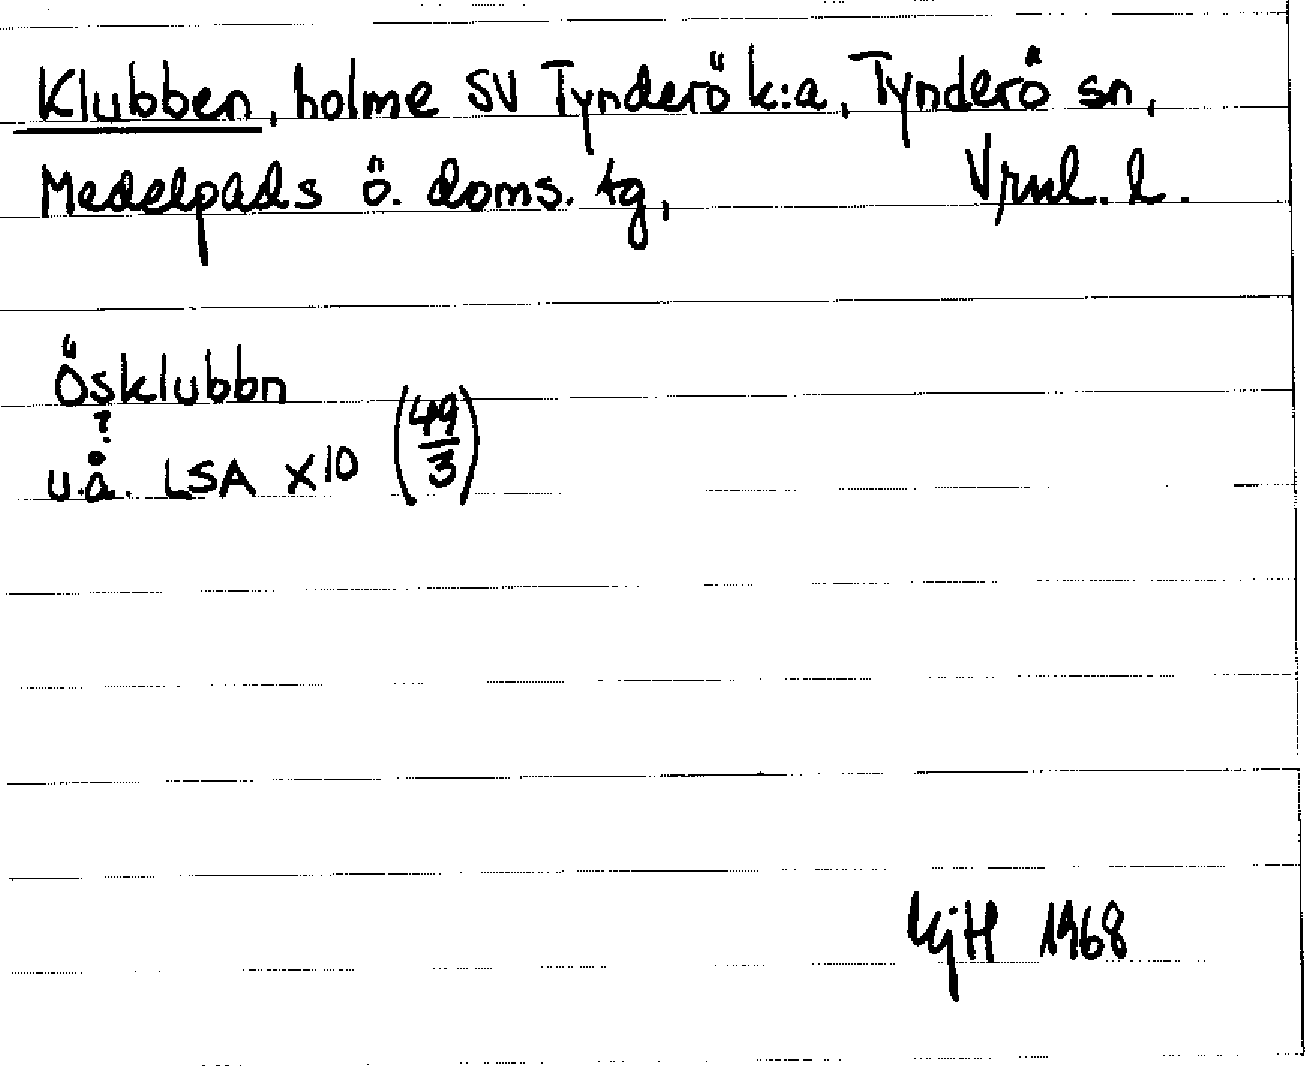 Klubben, holme SV Tynderö k:a, Tynderö sn,
Medelpads ö. doms. tg, Vrnl. l.
Ösklubbn
?
u.å. LSA X10 (49/3)
KjH 1968